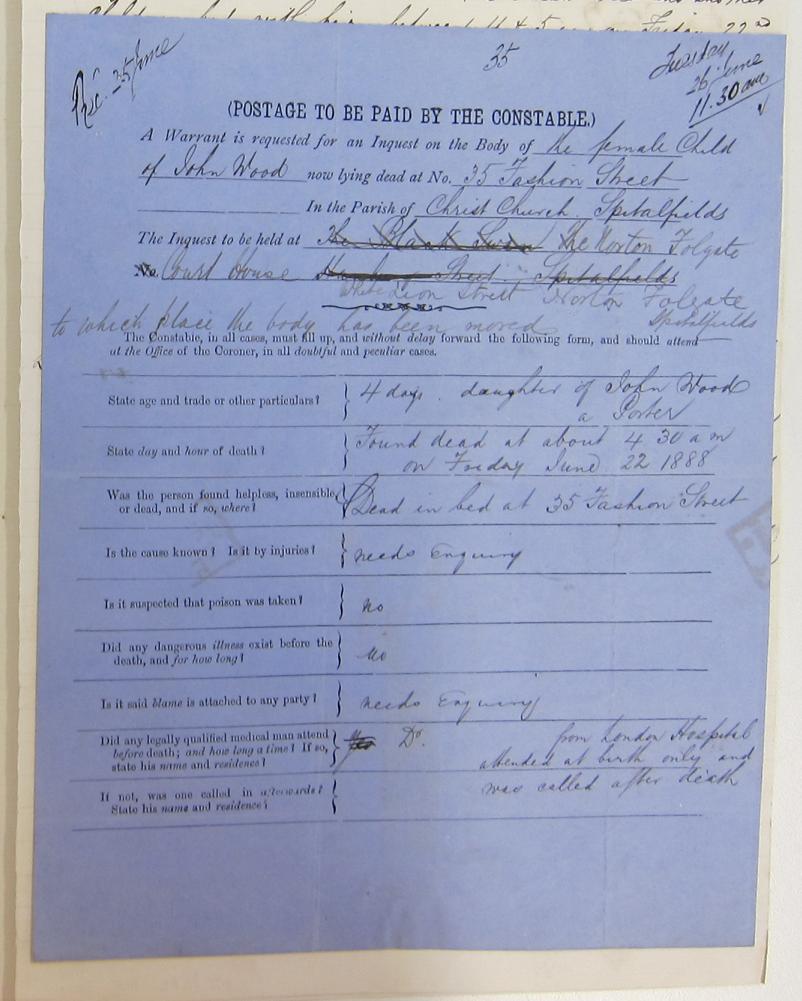 35
Rec. 25 June
Tuesday
26 June
11.30 am
(POSTAGE TO BE PAID BY THE CONSTABLE.)
A Warrant is requested for an Inquest on the Body of the female Child
of John Wood now lying dead at No. 35 Fashion Street
In the Parish of Christ Church Spitalfields
The Inquest to be held at The Black Swan The Norton Folgate
No. Court House Street Spitalfields
White Lion Street Norton Folgate
Spitalfields
to which place the body has been moved
The Constable, in all cases, must fill up, and without delay forward the following form, and should attend
at the Office of the Coroner, in all doubtful and peculiar cases.
State age and trade or other particulars? 4 days. daughter of John Wood
a Porter
State day and hour of death? Found dead at about 4 30 a m
on Friday June 22 1888
Was the person found helpless, insensible,
or dead, and if so, where? Dead in bed at 35 Fashion Street
Is the cause known? Is it by injuries? needs Enquiry
Is it suspected that poison was taken? no
Did any dangerous illness exist before the
death, and for how long? No
Is it said blame is attached to any party? needs Enquiry
Did any legally qualified medical man attend
before death; and how long a time? If so,
state his name and residence? Yes Dr. from London Hospital
attended at birth only and
was called after death
If not, was one called in afterwards?
State his name and residence?